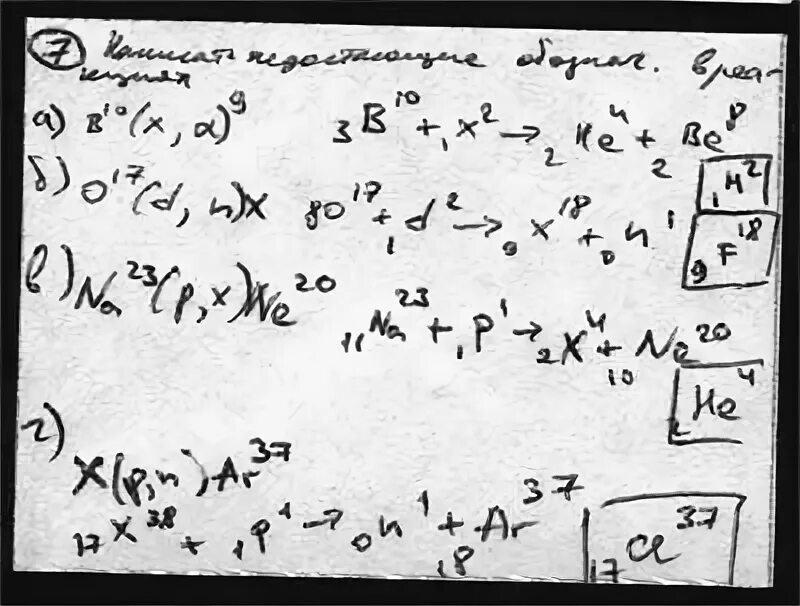 7 Написать недостающие обознач. в реа-
кциях
а) B¹⁰(x, α)⁹ ₃B¹⁰ + ₁x² → ₂He⁴ + ₂Be⁸
₁H²
б) O¹⁷(d, n)x ₈O¹⁷ + ₁d² → ₉x¹⁸ + ₀n¹
₉F¹⁸
в) Na²³(p, x)Ne²⁰ ₁₁Na²³ + ₁p¹ → ₂X⁴ + ₁₀Ne²⁰
₂He⁴
г)
X(p, n)Ar³⁷
₁₇X³⁸ + ₁p¹ → ₀n¹ + ₁₈Ar³⁷ ₁₇Cl³⁷